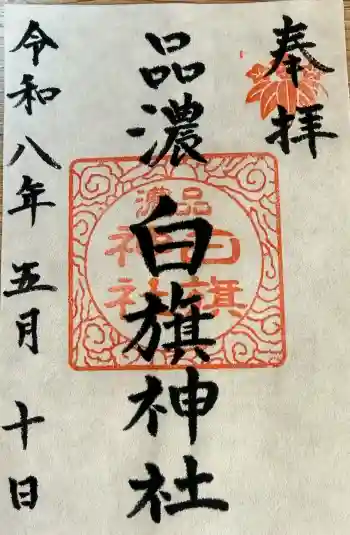 奉拝
品濃 白旗神社
品濃
白旗
神社
令和八年 五月 十日